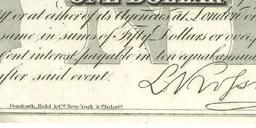 ONE DOLLAR
or either of its Agencies at London or
same, in sums of Fifty Dollars or over
cent interest, payable in
after said event.
Danforth, Bald & Co. New York & Philada.